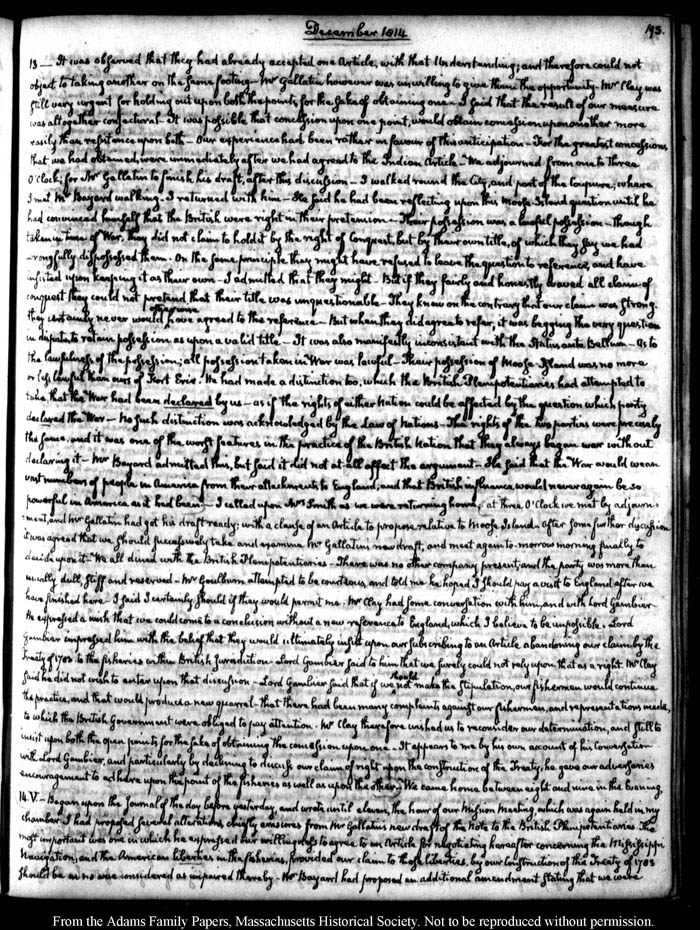 December 1814
193.
13 — It was observed that they had already accepted one Article, with that Understanding; and therefore could not
object to taking another on the same footing — Mr Gallatin however was unwilling to give them the opportunity. Mr Clay was
still very urgent for holding out upon both the points, for the sake of obtaining one — I said that the result of our measure
was altogether conjectural. It was possible that concession upon one point, would obtain concession upon another more
easily than resistance upon both — Our experience had been rather in favour of this anticipation — For the greatest concessions,
that we had obtained, were immediately after we had agreed to the Indian Article. We adjourned from one to three
O'Clock, for Mr Gallatin to finish his draft, after this discussion — I walked round the City, and part of the Coupure, where
I met Mr Bayard walking. I returned with him — He said he had been reflecting upon this Moose Island question until he
had convinced himself that the British were right in their pretension — Their possession was a lawful possession — though
taken in time of War, they did not claim to hold it by the right of Conquest, but by their own title, of which they say we had
wrongfully dispossessed them. On the same principle they might have refused to leave the question to reference, and have
insisted upon keeping it as their own — I admitted that they might — But if they fairly and honestly waved all claim of
conquest they could not pretend that their title was unquestionable — They know on the contrary that our claim was strong.
they certainly never would otherwise have agreed to this reference — But when they did agree to refer, it was begging the very question
in dispute to retain possession as upon a valid title — It was also manifestly inconsistent with the Status ante Bellum — As to
the lawfulness of the possession; all possession taken in War was lawful — Their possession of Moose Island was no more
or less lawful than ours of Fort Erie. He had made a distinction too, which the British Plenipotentiaries had attempted to
take, that the War had been declared by us — as if the rights of either Nation could be affected by the question which party
declared the War — No such distinction was acknowledged by the law of Nations — The rights of the two parties were precisely
the same, and it was one of the worst features in the practice of the British Nation that they always began war without
declaring it — Mr Bayard admitted this, but said it did not at all affect the argument — He said that the War would wean
vast numbers of people in America from their attachments to England, and that British influence would never again be so
powerful in America as it had been — I called upon Mrs Smith as we were returning home; at three O'Clock we met by adjourn-
-ment, and Mr Gallatin had got his draft ready; with a clause of an Article to propose relative to Moose Island. After some further discussion
it was agreed that we should successively take and examine Mr Gallatin's new draft, and meet again to-morrow morning finally to
decide upon it. We all dined with the British Plenipotentiaries — There was no other company present, and the party was more than
usually dull, stiff and reserved — Mr Goulburn attempted to be courteous, and told me he hoped I should pay a visit to England after we
have finished here — I said I certainly should if they would permit me. Mr Clay had some conversation with him, and with Lord Gambier
He expressed a wish that we could come to a conclusion without a new reference to England, which I believe to be impossible. Lord
Gambier impressed him with the belief that they would ultimately insist upon our subscribing to an Article abandoning our claim by the
Treaty of 1783 to the fisheries within British Jurisdiction — Lord Gambier said to him that we surely could not rely upon that as a right. Mr Clay
said he did not wish to enter upon that discussion — Lord Gambier said that if we should not make the stipulation, our fishermen would continue
the practice, and that would produce a new quarrel — that there had been many complaints against our fishermen, and representations made,
to which the British Government were obliged to pay attention. Mr Clay therefore wished us to reconsider our determination, and still to
insist upon both the open points for the sake of obtaining the concession upon one. It appears to me by his own account of his Conversation
with Lord Gambier, and particularly by declining to discuss our claim of right upon the construction of the Treaty, he gave our adversaries
encouragement to adhere upon the point of the fisheries as well as upon the other — We came home between eight and nine in the Evening.
14. V — Began upon the Journal of the day before yesterday, and wrote until eleven, the hour of our Mission Meeting, which was again held in my
chamber. I had proposed several alterations, chiefly erasures from Mr Gallatin's new draft of the Note to the British Plenipotentiaries. The
most important was one in which he expressed our willingness to agree to an Article for negotiating hereafter concerning the Mississippi
Navigation, and the American liberties in the fisheries, provided our claim to those liberties, by our Construction of the Treaty of 1783
should be in no was considered as impaired thereby — Mr Bayard had proposed an additional amendment stating that we were
From the Adams Family Papers, Massachusetts Historical Society. Not to be reproduced without permission.